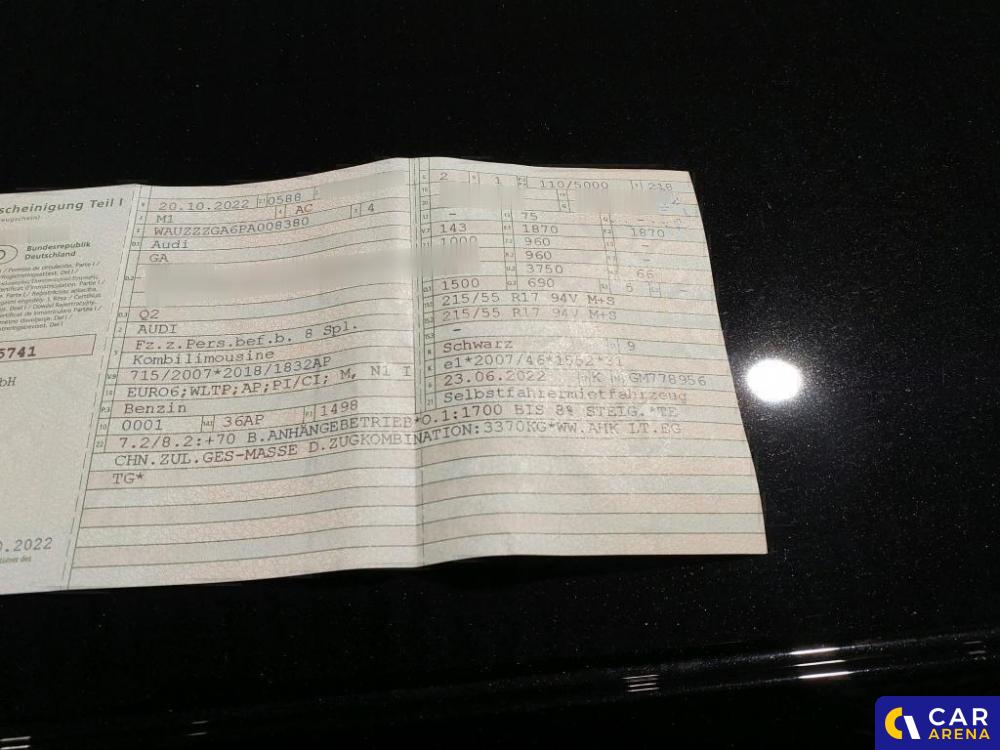 scheinigung Teil I
Bundesrepublik
Deutschland
5741
bH
.2022
20.10.2022 0588
M1 AC 4
WAUZZZGA6PA008380
Audi
GA
Q2
AUDI
Fz.z.Pers.bef.b. 8 Spl.
Kombilimousine
715/2007*2018/1832AP
EURO6;WLTP;AP;PI/CI; M, N1 I
Benzin
0001 36AP 1498
2 1 110/5000 218
- 75 -
143 1870 1870
1000 960 -
960 -
3750 66
1500 690 5 -
215/55 R17 94V M+S
215/55 R17 94V M+S
-
Schwarz 9
e1*2007/46*1552*31
23.06.2022 K GM778956
Selbstfahrermietfahrzeug
7.2/8.2:+70 B.ANHÄNGEBETRIEB*O.1:1700 BIS 8% STEIG.*TE
CHN.ZUL.GES-MASSE D.ZUGKOMBINATION:3370KG*WW.AHK LT.EG
TG*
CAR
ARENA